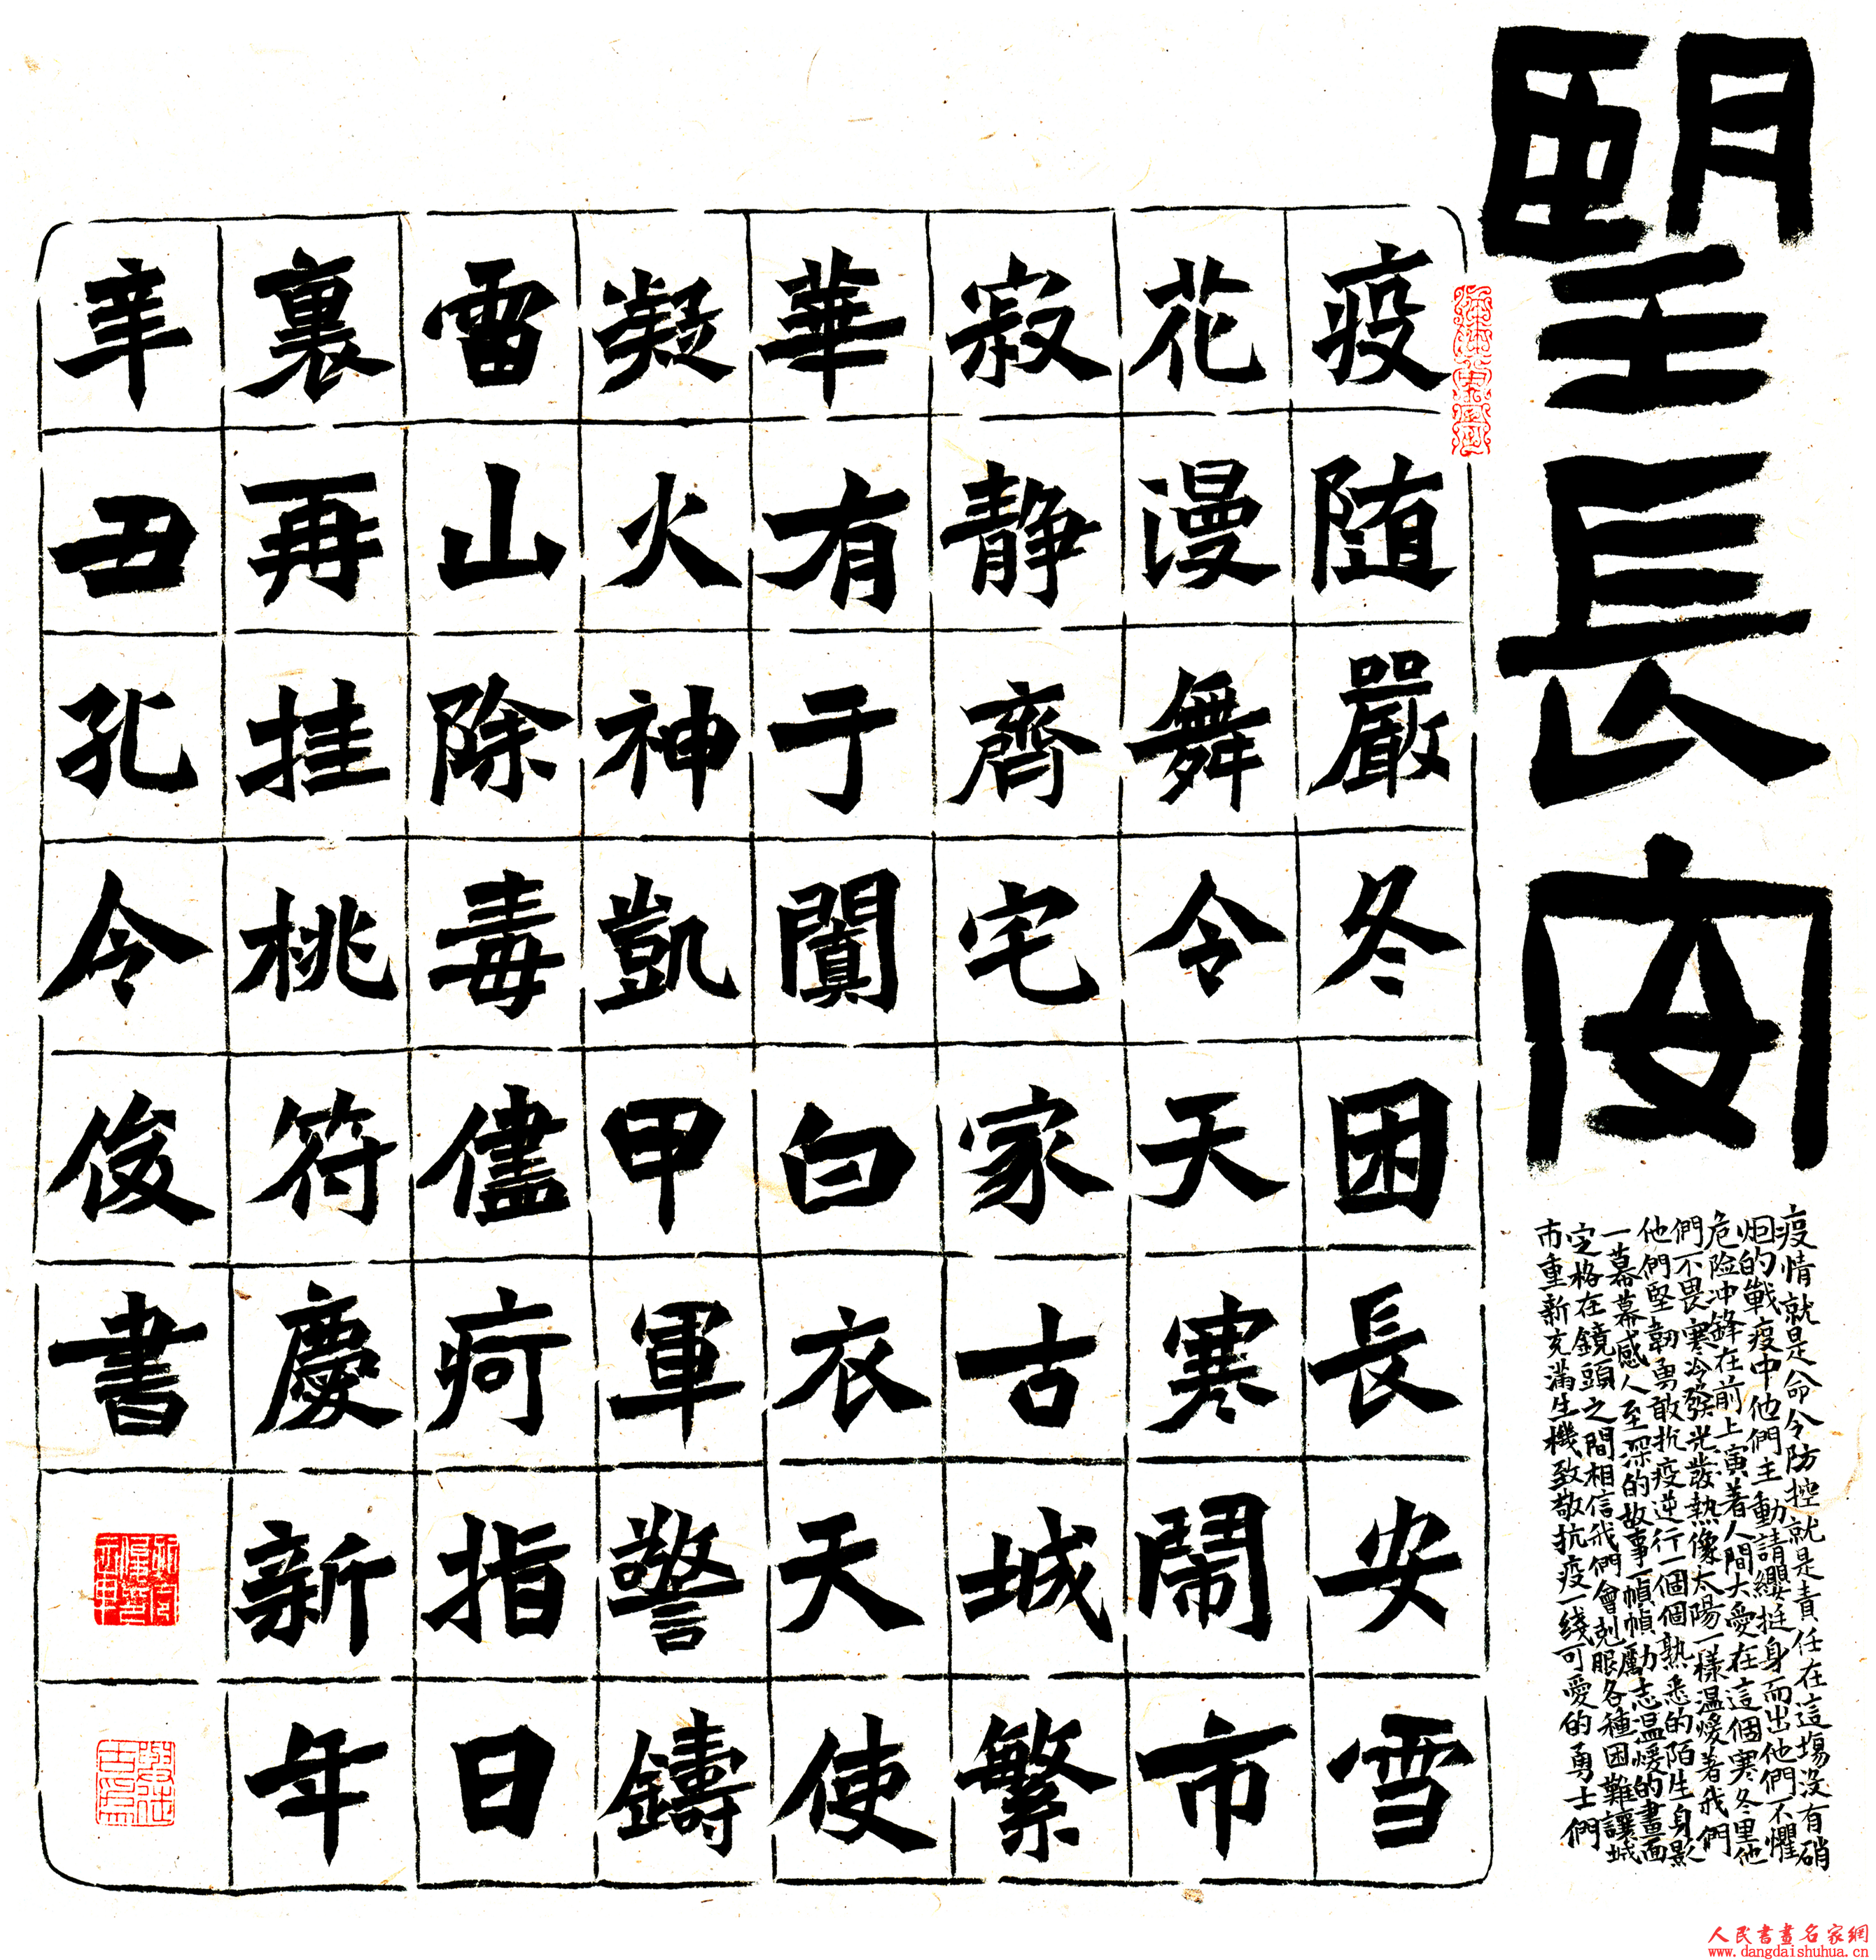 朢長安
疫情就是命令防控就是責任在這塲没有硝
烟的戰疫中他們主動請纓挺身而出他們不懼
危险冲鋒在前上演着人間大愛在這個寒冬里他
們不畏寒冷發光發熱像太陽一樣温暖著我們
他們堅韌勇敢抗疫逆行一個個熟悉的陌生身影
一幕幕感人至深的故事一幀幀勵志温暖的畫面
定格在鏡頭之間相信我們會剋服各種困難讓城
市重新充滿生機致敬抗疫一綫可愛的勇士們
疫随嚴冬困長安雪
花漫舞令天寒鬧市
寂静齊宅家古城繁
華有于闐白衣天使
凝火神凱甲軍警鑄
雷山除毒儘疴指日
裏再挂桃符慶新年
辛丑孔令俊書
人民書畫名家網
www.dangdaishuhua.cn